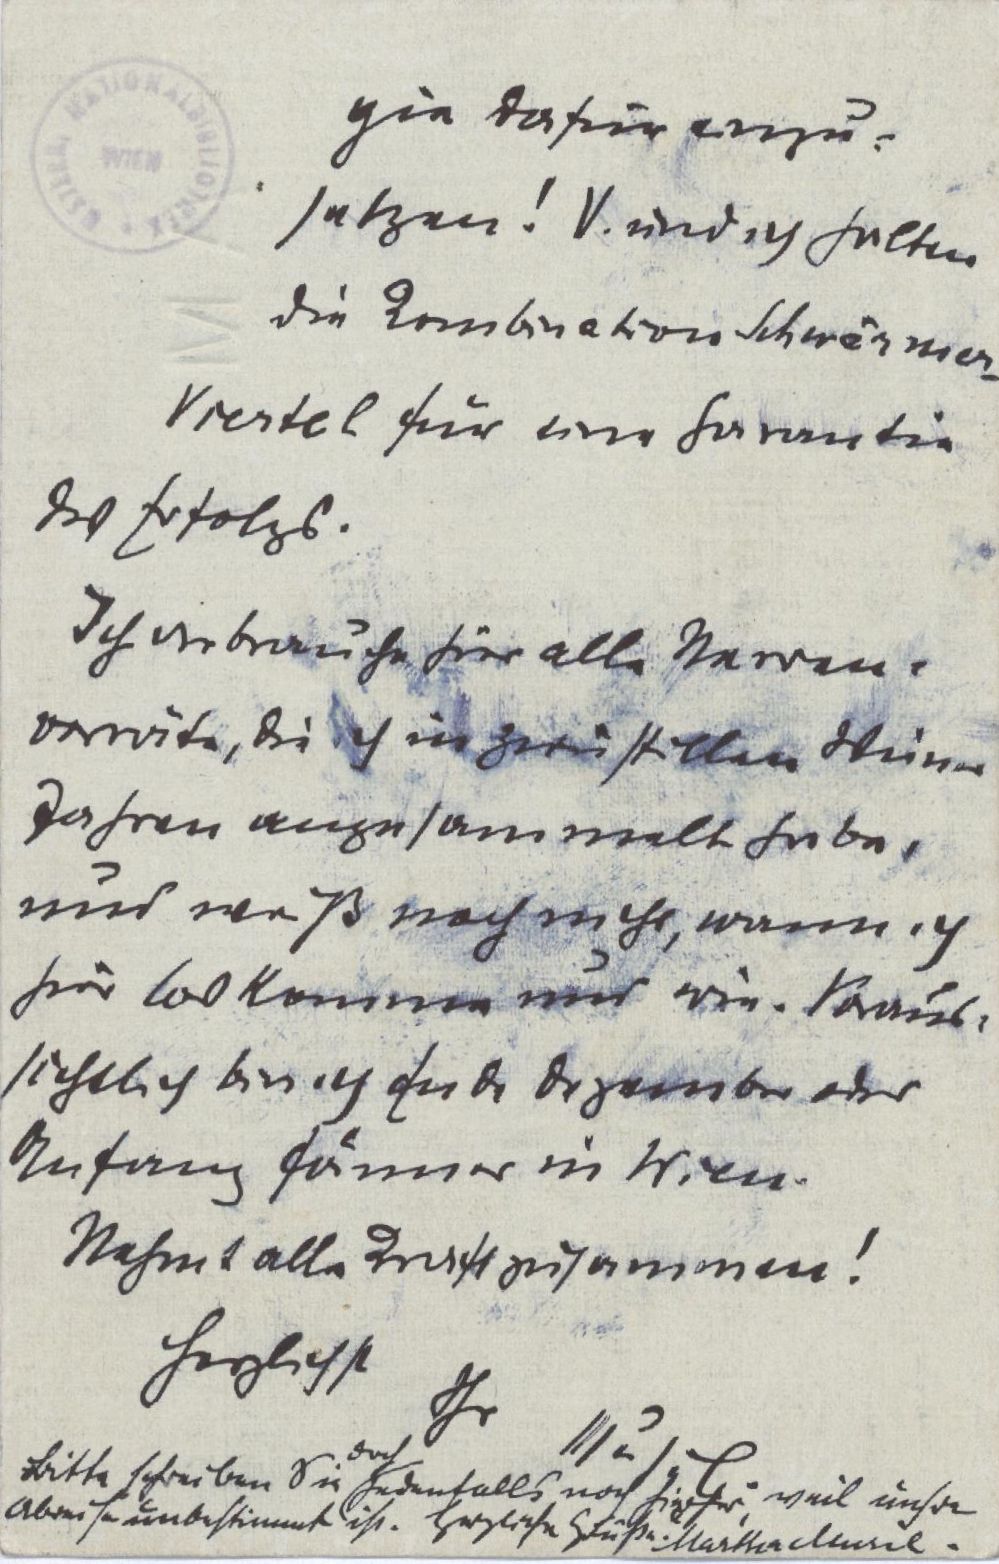 NATIONALBIBLIOTHEK
WIEN
gie dafür einzu-
setzen! V. und ich halten
die Kombination Schwärmer-
Viertel für eine Garantie
des Erfolgs.
Ich verbrauche hier alle Nerven-
vorräte, die ich in zwei stillen Wiener
Jahren angesammelt habe,
und weiß noch nicht, wann ich
hier loskomme und wie. Voraus-
sichtlich bin ich Ende Dezember oder
Anfang Jänner in Wien.
Nehmt alle Kraft zusammen!
Herzlichst
Ihr
Musil
Bitte schreiben Sie doch jedenfalls noch hierher, weil unsre
Abreise unbestimmt ist. Herzliche Grüße. Martha Musil.